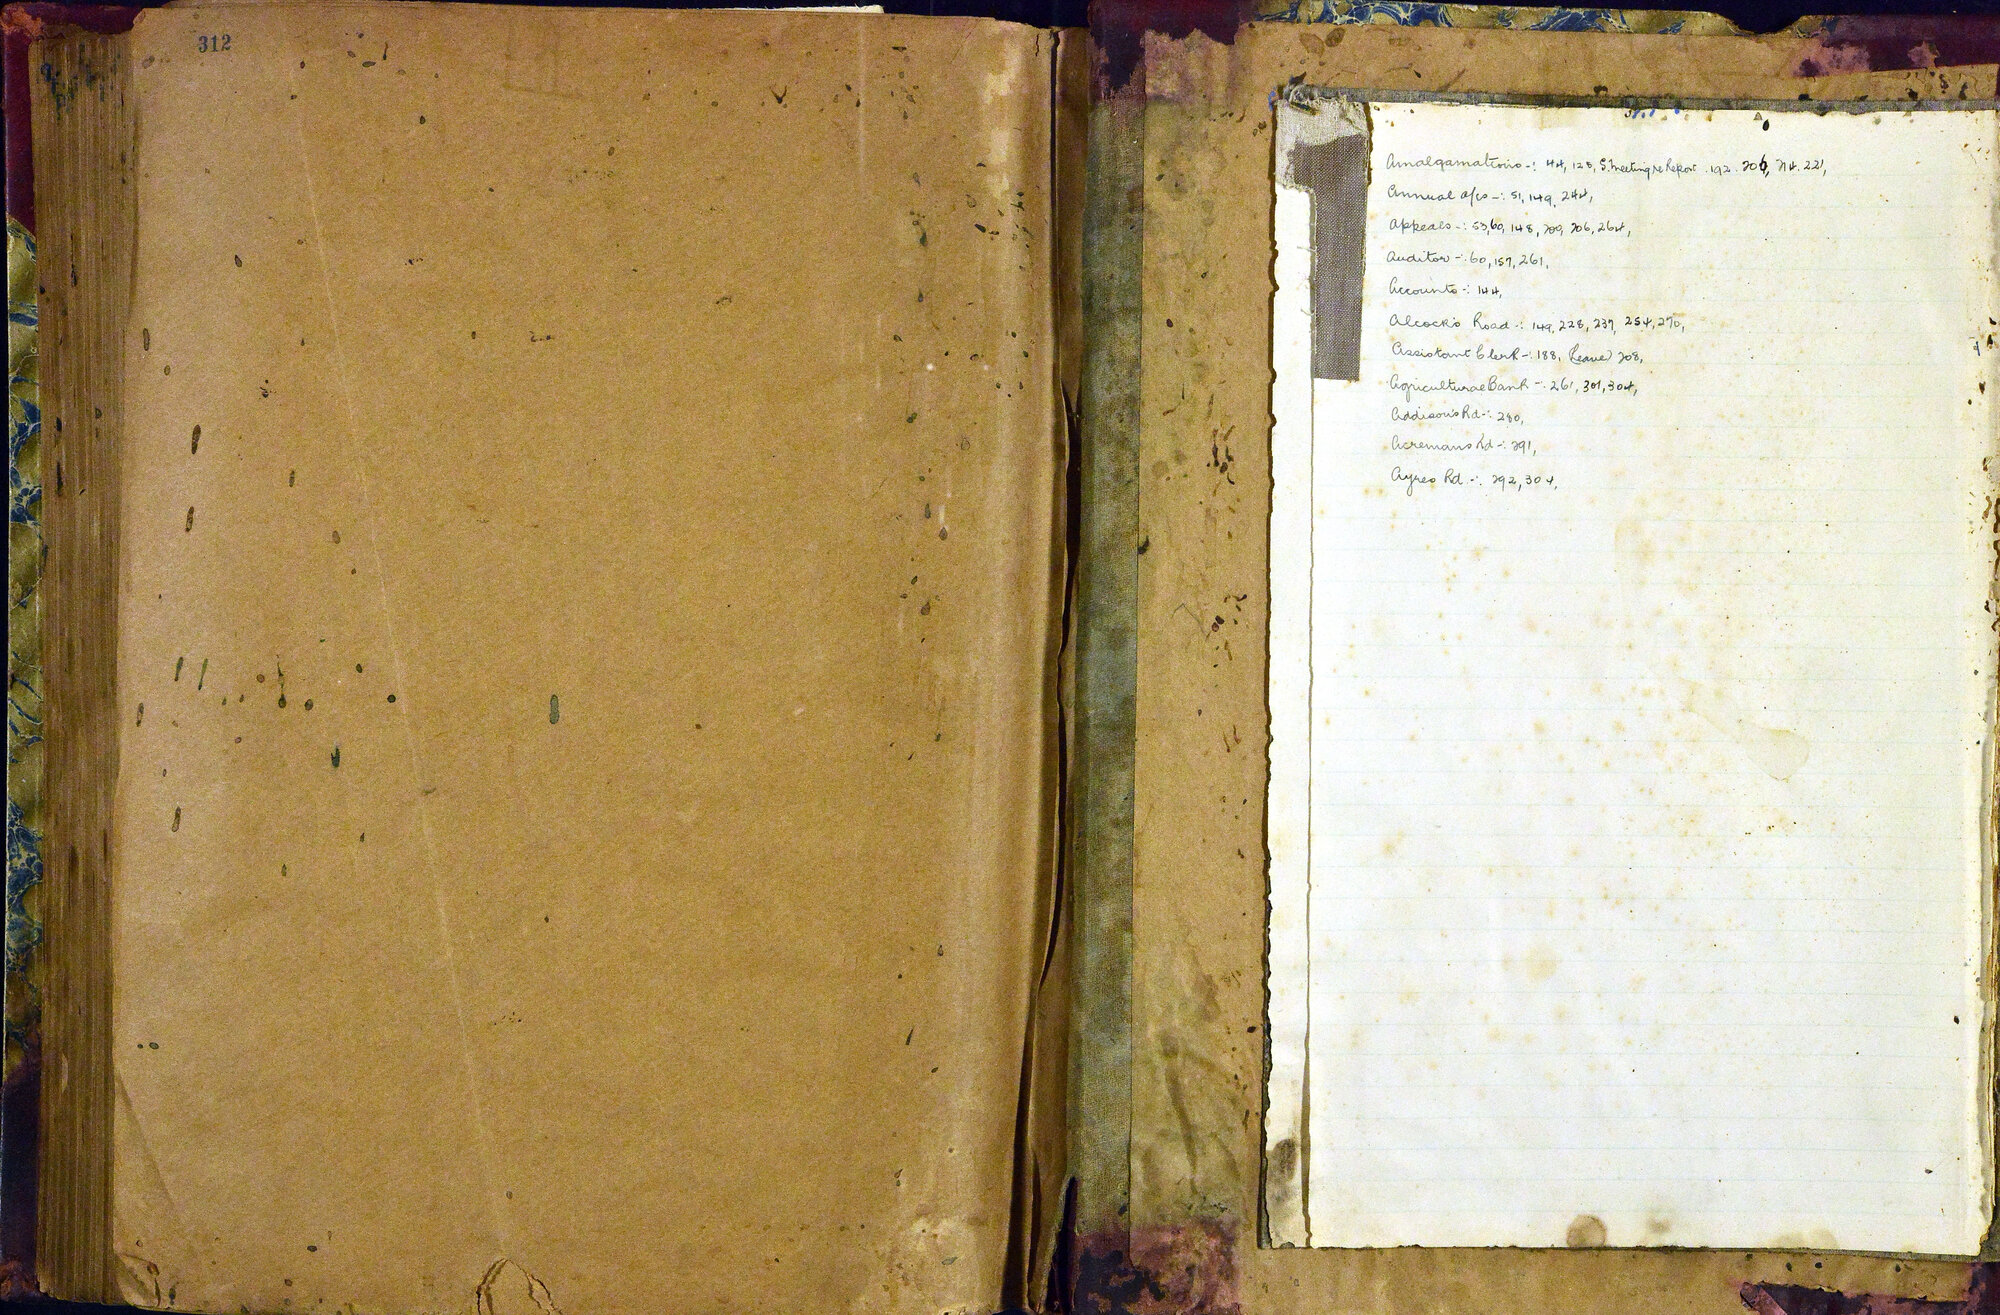 312
Amalgamations -: 44, 128, S. Meeting re Report. 192. 206, 214. 221,
Annual a/cs -: 51, 149, 244,
Appeals -: 53, 60, 148, 209, 206, 264,
Auditor -: 60, 157, 261,
Accounts -: 144,
Alcock's Road -: 149, 228, 237, 254, 270,
Assistant Clerk -: 188, (Leave) 208,
Agricultural Bank -: 261, 301, 304,
Addison's Rd -: 280,
Acremans Rd -: 291,
Ayres Rd -: 292, 304,